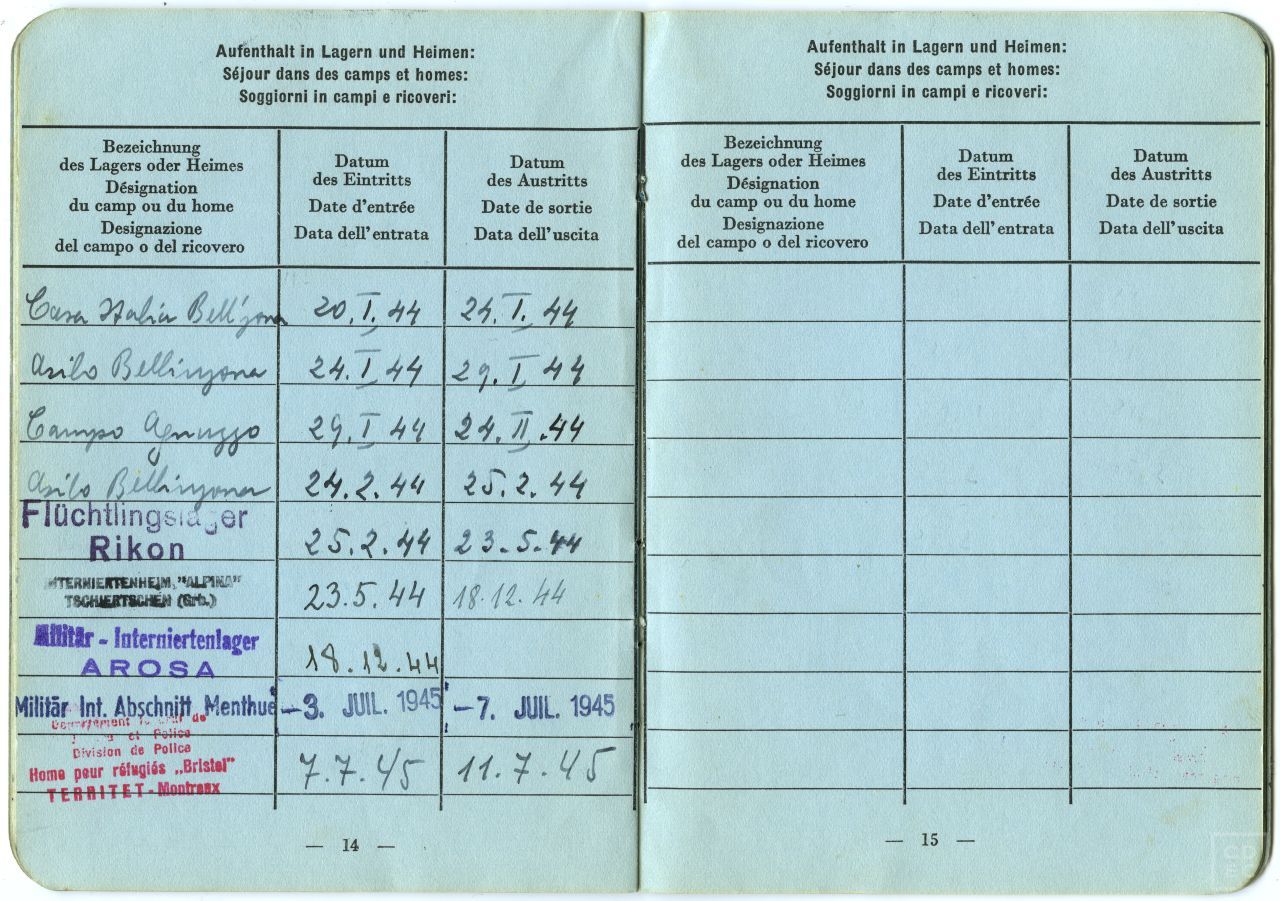 Aufenthalt in Lagern und Heimen:
Séjour dans des camps et homes:
Soggiorni in campi e ricoveri:
Bezeichnung
des Lagers oder Heimes
Désignation
du camp ou du home
Designazione
del campo o del ricovero
Datum
des Eintritts
Date d'entrée
Data dell'entrata
Datum
des Austritts
Date de sortie
Data dell'uscita
Casa Italia Bell'zona 20. I. 44 24. I. 44
Asilo Bellinzona 24. I 44 29. I 44
Campo Agnuzzo 29. I 44 24. II. 44
Asilo Bellinzona 24. 2. 44 25. 2. 44
Flüchtlingslager
Rikon 25. 2. 44 23. 5. 44
INTERNIERTENHEIM, "ALPINA"
TSCHIERTSCHEN (Grb.) 23. 5. 44 18. 12. 44
Militär - Interniertenlager
AROSA 18. 12. 44
Militär Int. Abschnitt Menthue -3. JUIL. 1945 -7. JUIL. 1945
Département de
et Police
Division de Police
Home pour réfugiés „Bristol"
TERRITET - Montreux 7. 7. 45 11. 7. 45
— 14 —
Aufenthalt in Lagern und Heimen:
Séjour dans des camps et homes:
Soggiorni in campi e ricoveri:
Bezeichnung
des Lagers oder Heimes
Désignation
du camp ou du home
Designazione
del campo o del ricovero
Datum
des Eintritts
Date d'entrée
Data dell'entrata
Datum
des Austritts
Date de sortie
Data dell'uscita
— 15 —